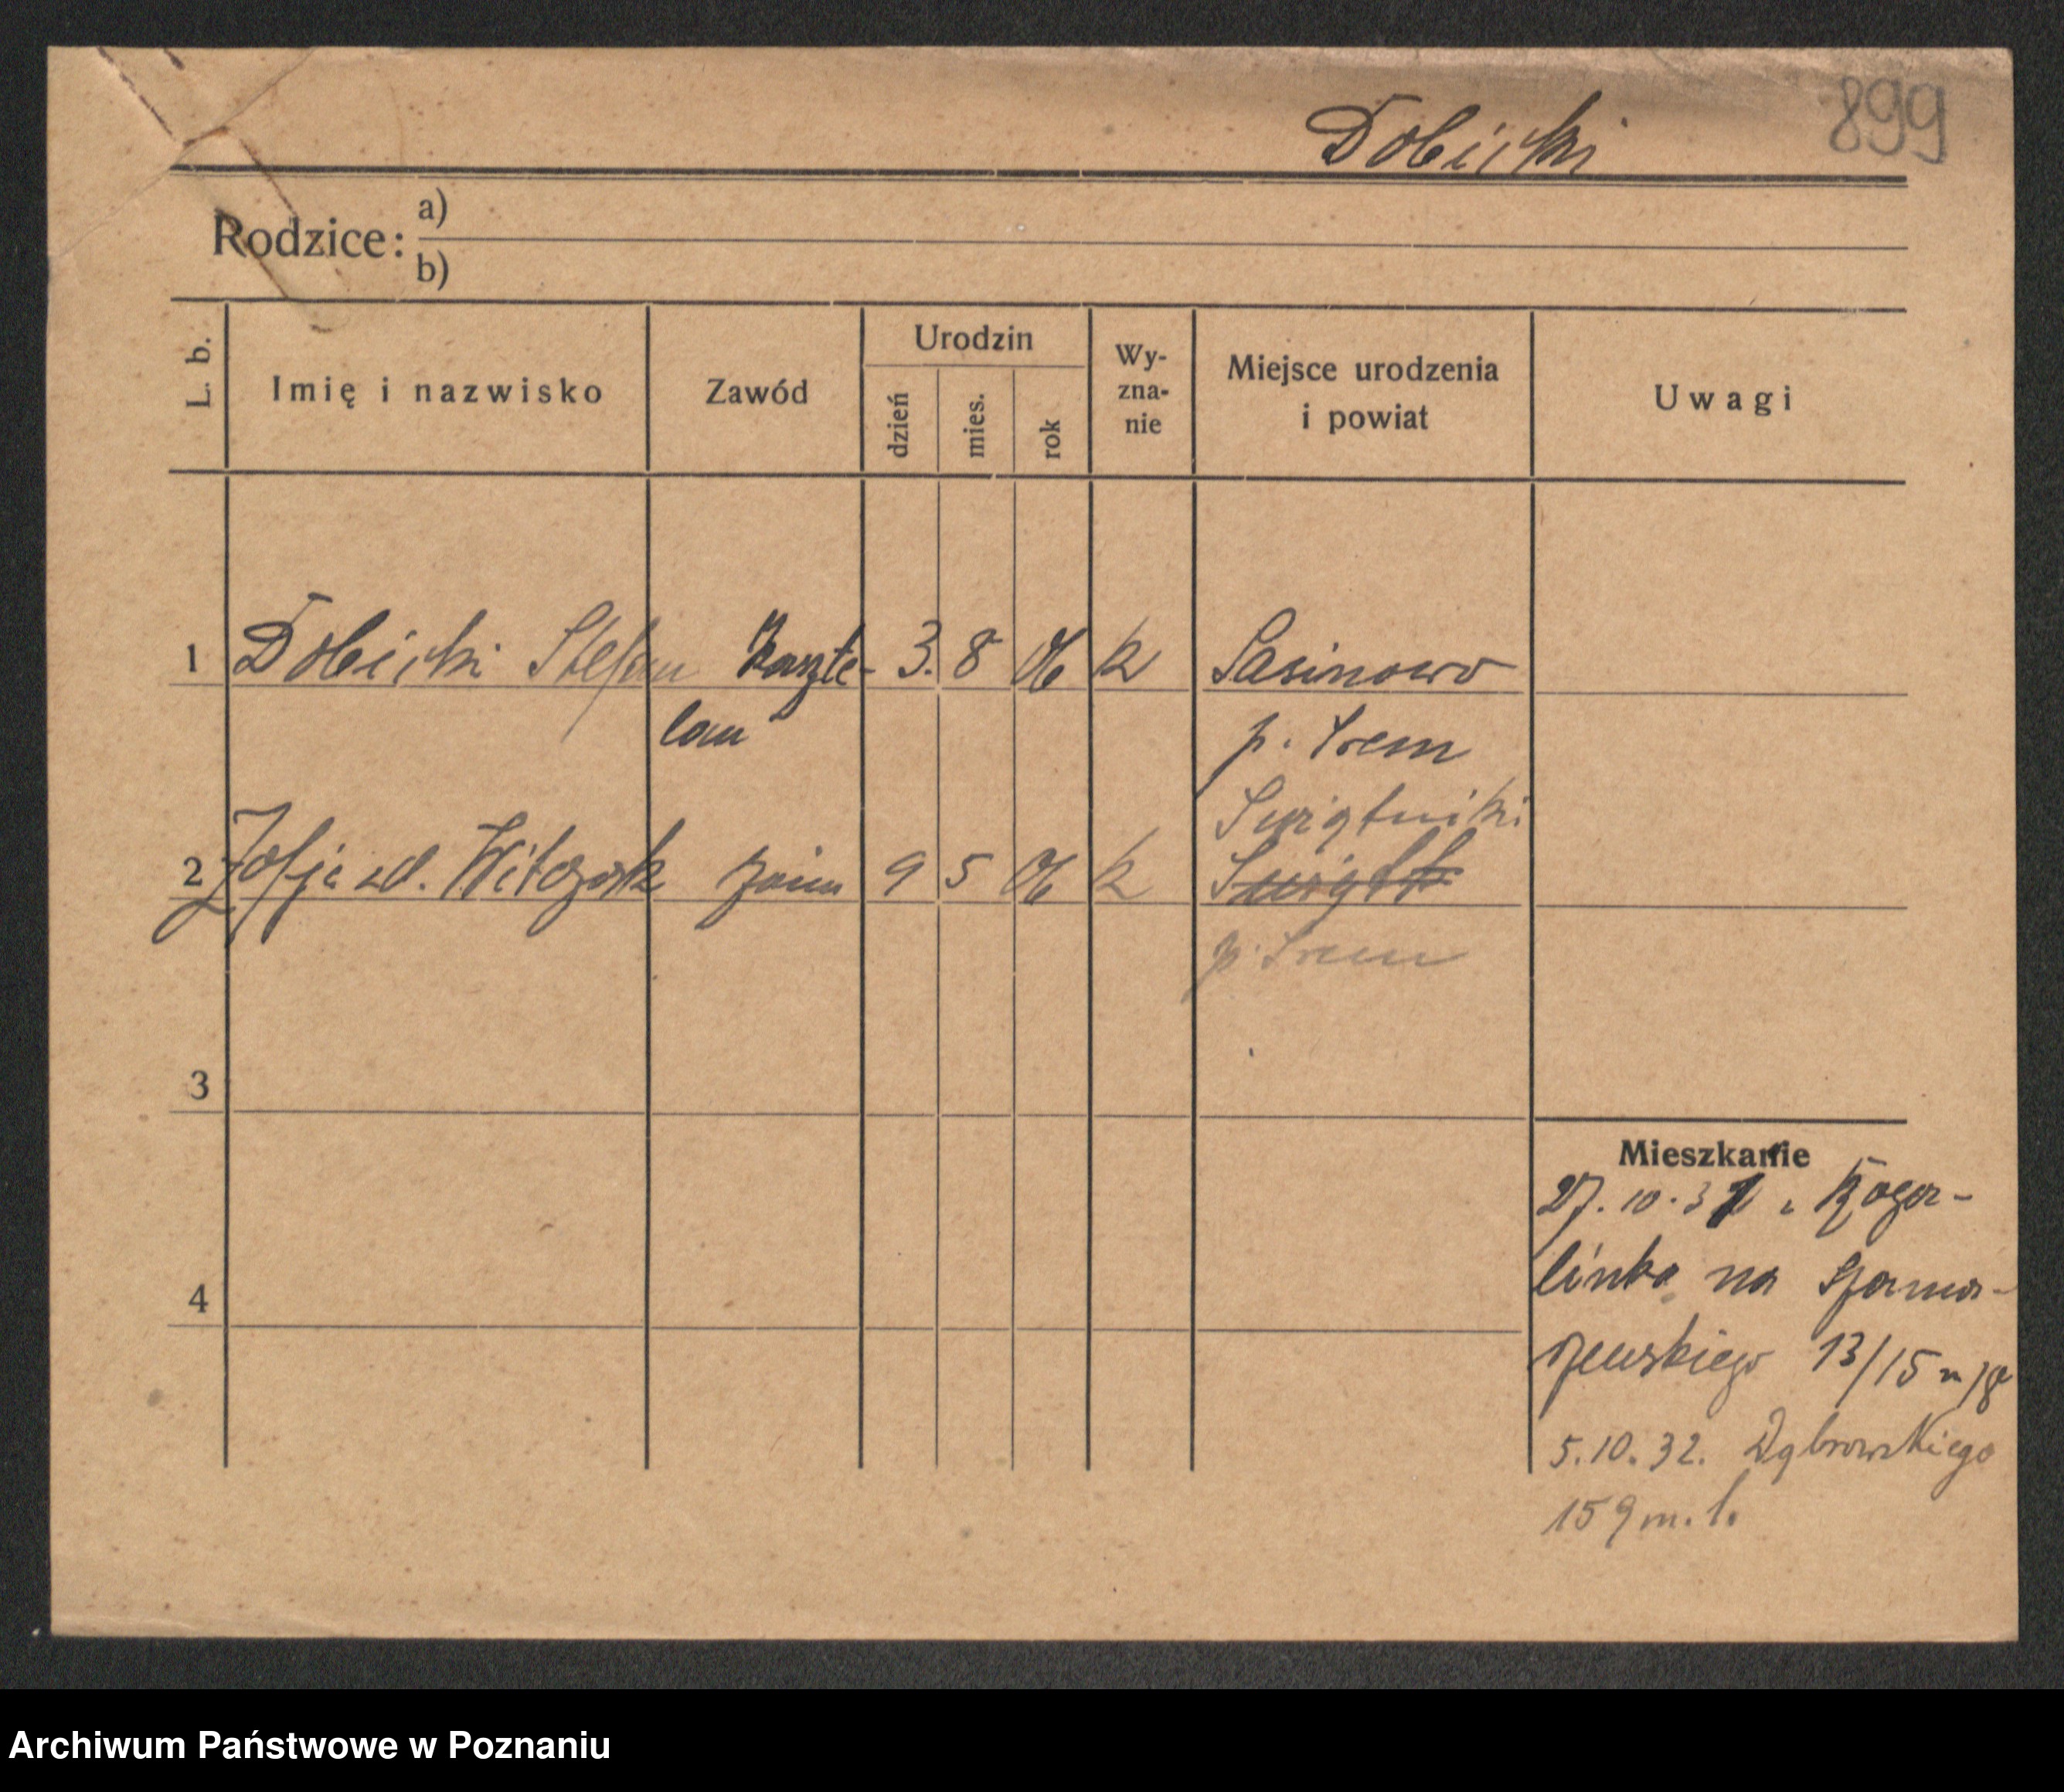 899
Dobicki
Rodzice: a)
b)
L. b.
Imię i nazwisko
Zawód
Urodzin
dzień
mies.
rok
Wy-
zna-
nie
Miejsce urodzenia
i powiat
Uwagi
1 Dobicki Stefan kaszte- 3. 8 06 k Sasinowo
lan p. Srem
Świątniki
2 Zofja zd. Witczak 9 5 06 k Świątk
p. Srem
3
Mieszkanie
27. 10. 31 z Roga-
4
linka na Szama-
rzewskiego 13/15
5.10.32. Dąbrowskiego
159 m. 1.
Archiwum Państwowe w Poznaniu